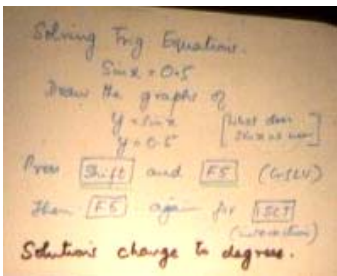 Solving Trig Equations.
Sin x = 0.5
Draw the graphs of
y = sin x [What does
y = 0.5
Press Shift and F5 (G-SLV)
Then F5 again for ISCT
(intersection)
Solutions change to degrees.